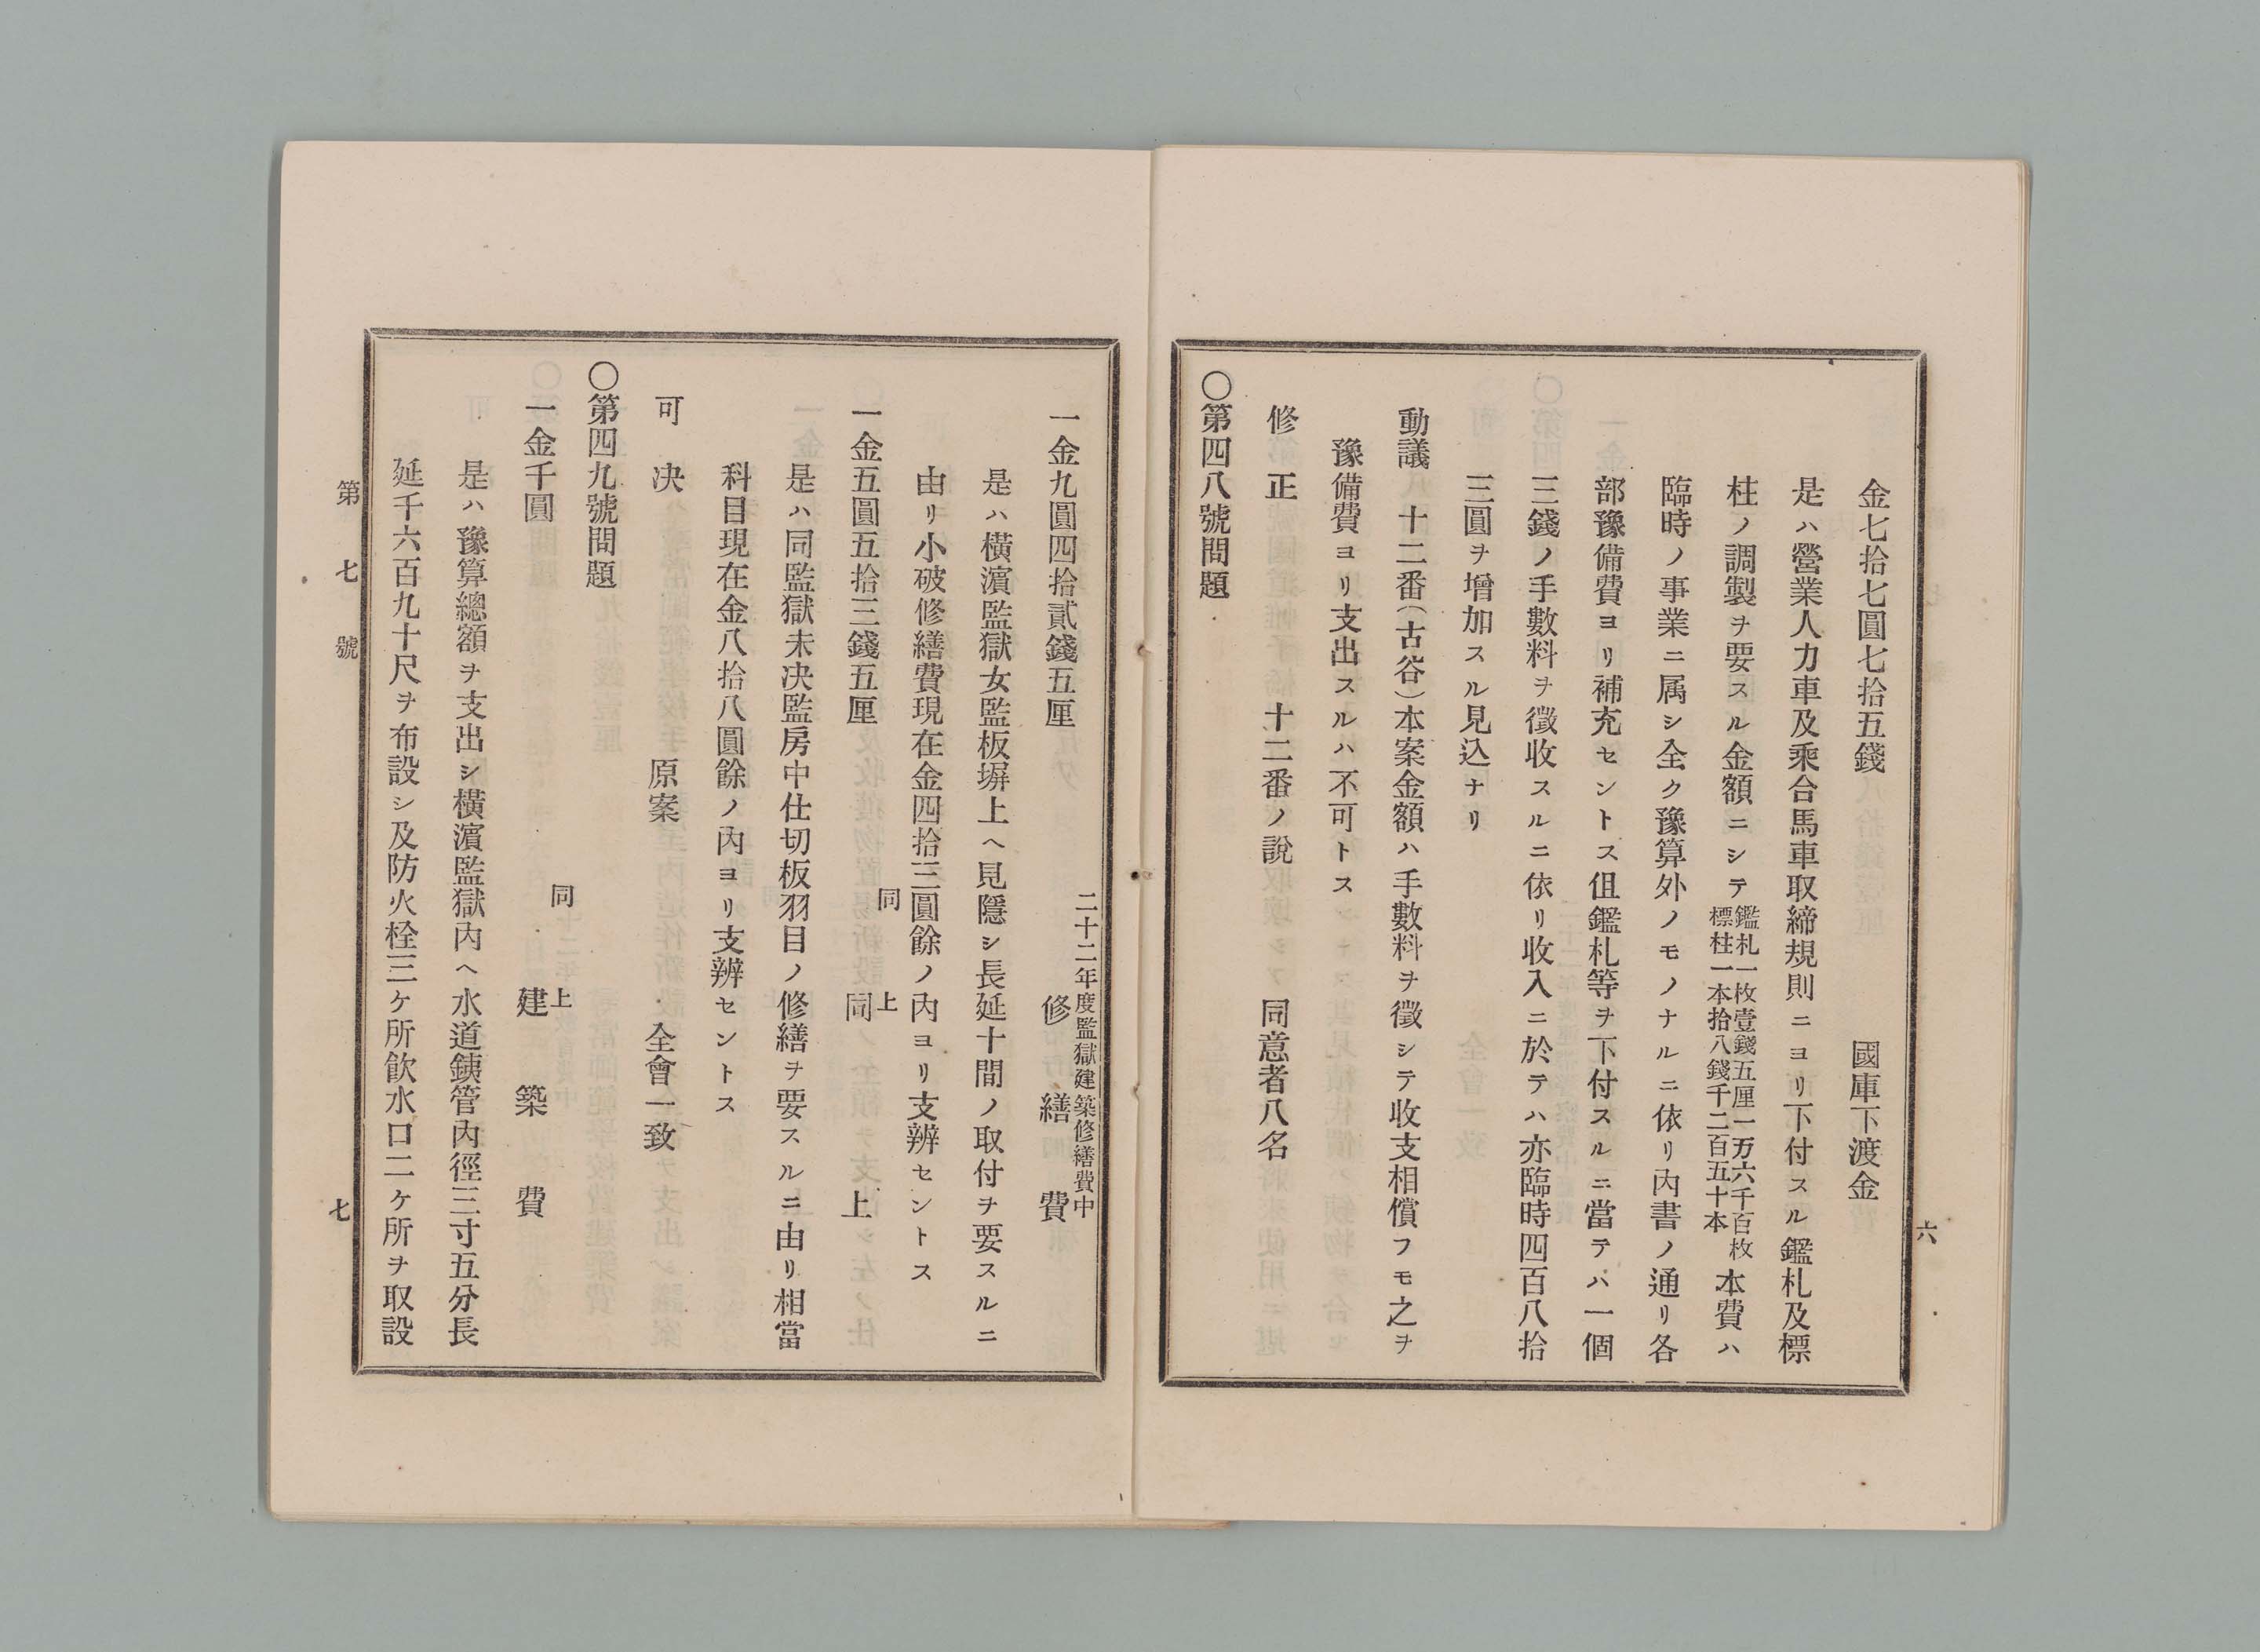 金七拾七圓七拾五錢　國庫下渡金
是ハ營業人力車及乘合馬車取締規則ニヨリ下付スル鑑札及標
柱ノ調製ヲ要スル金額ニシテ鑑札一枚壹錢五厘一万六千百枚標柱一本拾八錢千二百五十本本費ハ
臨時ノ事業ニ属シ全ク豫算外ノモノナルニ依リ内書ノ通リ各
部豫備費ヨリ補充セントス伹鑑札等ヲ下付スルニ當テハ一個
三錢ノ手數料ヲ徵收スルニ依リ收入ニ於テハ亦臨時四百八拾
三圓ヲ增加スル見込ナリ
動議　十二番（古谷）本案金額ハ手數料ヲ徵シテ收支相償フモ之ヲ
豫備費ヨリ支出スルハ不可トス
修正　十二番ノ說　同意者八名
〇第四八號問題
六
一金九圓四拾貳錢五厘　二十二年度監獄建築修繕費中　修繕費
是ハ橫濱監獄女監板塀上ヘ見隱シ長延十間ノ取付ヲ要スルニ
由リ小破修繕費現在金四拾三圓餘ノ内ヨリ支辨セントス
一金五圓五拾三錢五厘　同上　同上
是ハ同監獄未决監房中仕切板羽目ノ修繕ヲ要スルニ由リ相當
科目現在金八拾八圓餘ノ内ヨリ支辨セントス
可决　原案　全會一致
〇第四九號問題
一金千圓　同上　建築費
是ハ豫算總額ヲ支出シ橫濱監獄内ヘ水道銕管内徑三寸五分長
延千六百九十尺ヲ布設シ及防火栓三ケ所飮水口二ケ所ヲ取設
第七號
七